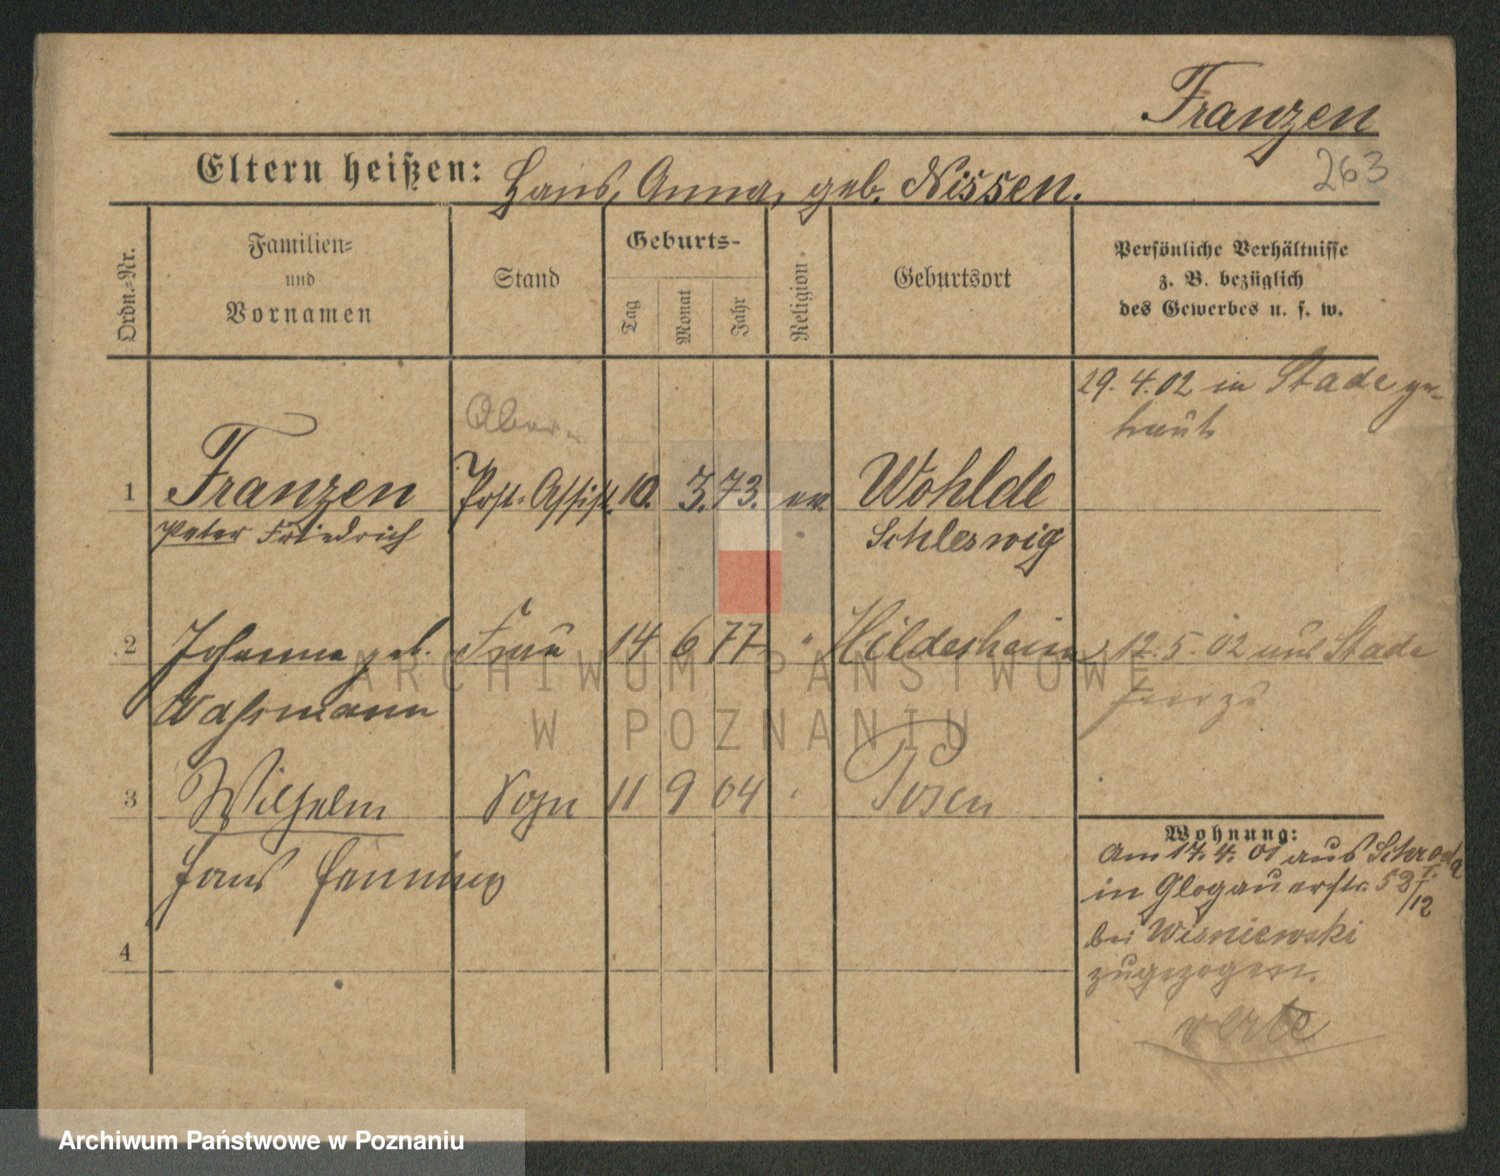 Franzen
263
Eltern heißen: Hans, Anna, geb. Nissen.
Ordn.-Nr.
Familien-
und
Vornamen
Stand
Geburts-
Tag
Monat
Jahr
Religion
Geburtsort
Persönliche Verhältnisse
z. B. bezüglich
des Gewerbes u. s. w.
29. 4. 02 in Stade ge-
traut
Ober-
1 Franzen Post-Assist. 10. 3. 73. ev. Wohlde
Peter Friedrich Schleswig
2 Johanna geb. Frau 14 6 77 " Hildesheim 12. 5. 02 aus Stade
hierzu
Wahrmann
3 Wilhelm Sohn 11 9 04 Posen
Hans Henning
4
Wohnung:
Am 17. 4. 01 aus Schroda
in Glogauerstr. 53 I.
/12
bei Wisniewski
zugezogen.
verte
ARCHIWUM PAŃSTWOWE
W POZNANIU
Archiwum Państwowe w Poznaniu